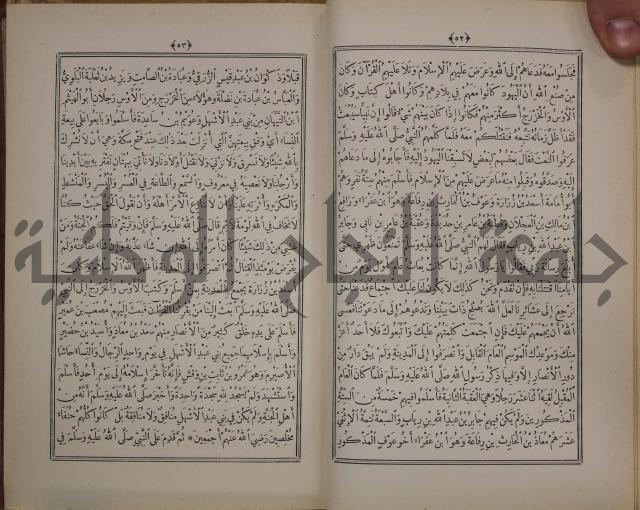 ﴿٥٢﴾
فجلسوا معه فدعاهم إلى الله وعرض عليهم الإسلام وتلا عليهم القرآن وكان
من صنع الله أن اليهود كانوا معهم في بلادهم وكانوا أهل كتاب وكان
الأوس والخزرج أكثر منهم فكانوا إذا كان بينهم شيء قالوا إن نبيا سيبعث
قد أظل زمانه نتبعه فنقتلكم معه فلما كلمهم النبي صلى الله عليه وسلم
عرفوا النعت فقال بعضهم لبعض لا تسبقنا اليهود إليه فأجابوه إلى ما دعاهم
إليه وصدقوه وقبلوا منه ما عرض عليهم من الإسلام فأسلم منهم ستة نفر وهم
أبو أمامة أسعد بن زرارة وعوف بن الحارث بن رفاعة وهو ابن عفراء ورافع
بن مالك بن العجلان وقطبة بن عامر بن حديدة وعقبة بن عامر بن نابي وجابر
بن عبد الله بن رياب فقال لهم النبي صلى الله عليه وسلم تمنعون ظهري حتى
أبلغ رسالة ربي فقالوا يا رسول الله إنما كانت بعاث عام الأول يوم من
أيامنا اقتتلنا به فإن تقدم ونحن كذلك لا يكون لنا عليك اجتماع فدعنا حتى
نرجع إلى عشائرنا لعل الله يصلح ذات بيننا وندعوهم إلى ما دعوتنا فعسى
الله أن يجمعهم عليك فإن اجتمعت كلمتهم عليك واتبعوك فلا أحد أعز
منك وموعدك الموسم العام القابل وانصرفوا إلى المدينة ولم يبق دار من
دور الأنصار إلا وفيها ذكر رسول الله صلى الله عليه وسلم فلما كان العام
المقبل لقيه اثنا عشر رجلا وهي العقبة الثانية فأسلموا فيهم خمسة من الستة
المذكورين ولم يكن فيهم جابر بن عبد الله بن رياب والسبعة تتمة الاثني
عشر هم معاذ بن الحارث بن رفاعة وهو ابن عفراء أخو عوف المذكور
﴿٥٣﴾
قبلا وذكوان بن عبد قيس الزرقي وعبادة بن الصامت ويزيد بن ثعلبة البلوي
والعباس بن عبادة بن نضلة وهؤلاء من الخزرج ومن الأوس رجلان أبو الهيثم
ابن التيهان من بني عبد الأشهل وعويم بن ساعدة فأسلموا وبايعوا على بيعة
النساء أي وفق بيعتهن التي أنزلت بعد ذلك عند فتح مكة وهي أن لا نشرك
بالله شيئا ولا نسرق ولا نزني ولا نقتل أولادنا ولا نأتي ببهتان نفتريه بين أيدينا
وأرجلنا ولا نعصيه في معروف والسمع والطاعة في العسر واليسر والمنشط
والمكره وأثرة علينا وأن لا ننازع الأمر أهله وأن نقول الحق حيث كنا
لا نخاف في الله لومة لائم قال صلى الله عليه وسلم فإن وفيتم فلكم الجنة ومن
غشي من ذلك شيئا كان أمره إلى الله إن شاء عذبه وإن شاء عفا عنه ولم
يفرض يومئذ القتال ثم انصرفوا إلى المدينة فأظهر الله الإسلام وكان
أسعد بن زرارة يجمع بالمدينة بمن أسلم وكتب الأوس والخزرج إلى النبي
صلى الله عليه وسلم ابعث إلينا من يقرئنا القرآن فبعث إليهم مصعب بن عمير
فأسلم على يده خلق كثير من الأنصار منهم سعد بن معاذ وأسيد بن حضير
وأسلم بإسلامهما جميع بني عبد الأشهل في يوم واحد الرجال والنساء حاشا
الأصيرم وهو عمرو بن ثابت بن وقش فإنه تأخر إسلامه إلى يوم أحد فأسلم
واستشهد ولم يسجد لله سجدة واحدة وأخبر صلى الله عليه وسلم أنه من
أهل الجنة ولم يكن في بني عبد الأشهل منافق ولا منافقة بل كانوا كلهم حنفاء
مخلصين رضي الله عنهم أجمعين * ثم قدم على النبي صلى الله عليه وسلم في
جمعة النجاح الوطنية